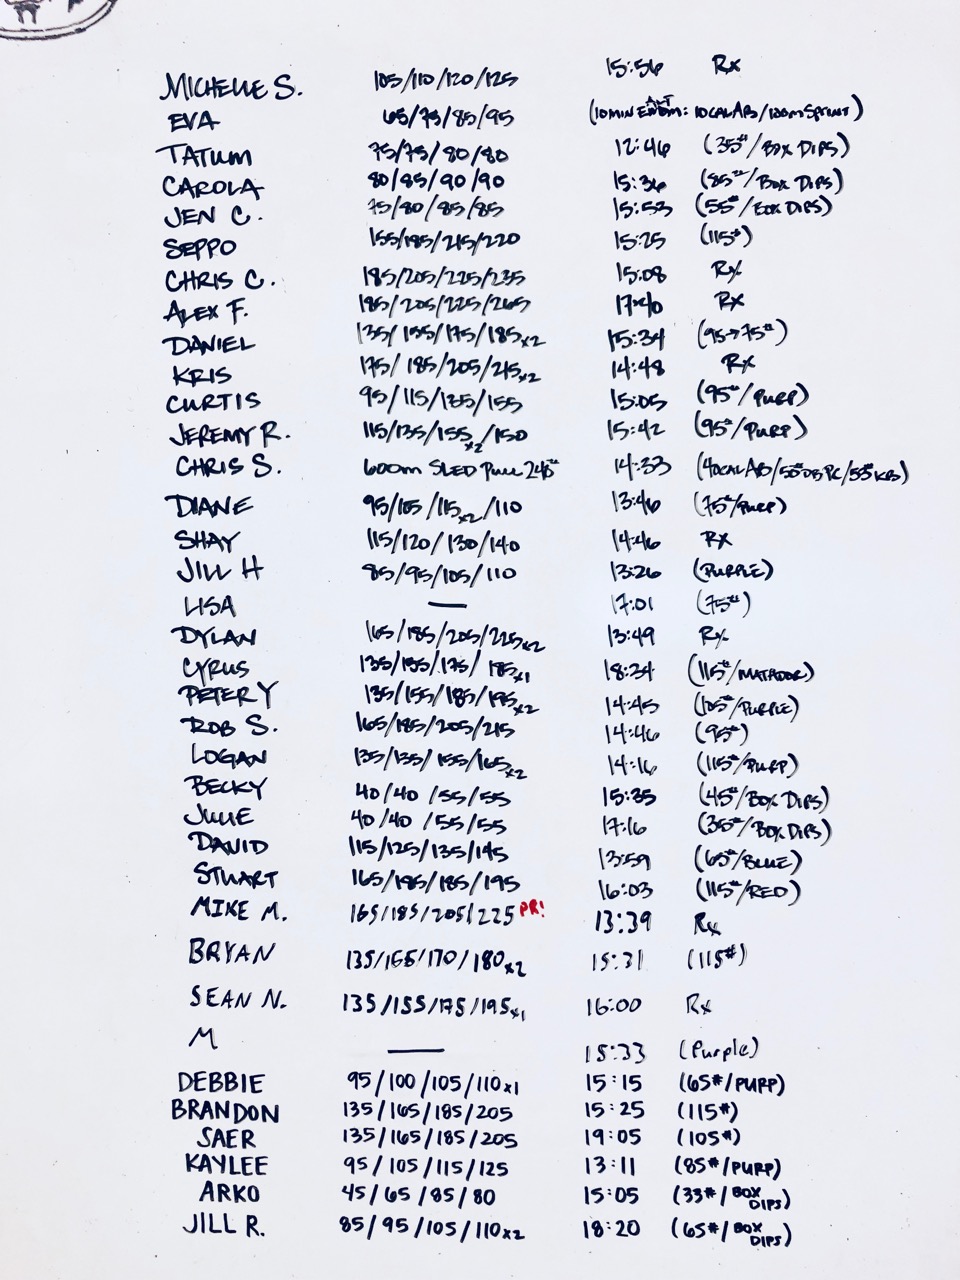 MICHELLE S. 105/110/120/125 15:56 Rx
EVA 65/75/85/95 (10MIN ALT EMOM: 10CALAB/100m SPRINT)
TATUM 75/75/80/80 12:46 (35#/BOX DIPS)
CAROLA 80/85/90/90 15:36 (85#/BOX DIPS)
JEN C. 75/80/85/85 15:53 (55#/BOX DIPS)
SEPPO 155/185/215/220 15:25 (115#)
CHRIS C. 185/205/225/235 15:08 Rx
ALEX F. 185/205/225/265 17:40 Rx
DANIEL 135/155/175/185x2 15:34 (95→75#)
KRIS 175/185/205/215x2 14:48 Rx
CURTIS 95/115/135/155 15:05 (95#/PURP)
JEREMY R. 115/135/155x2/150 15:42 (95#/PURP)
CHRIS S. 600m SLED PULL 245# 14:33 (40CALAB/55#DB PC/53#KB)
DIANE 95/105/115x2/110 13:46 (75#/PURP)
SHAY 115/120/130/140 14:46 Rx
JILL H 85/95/105/110 13:26 (PURPLE)
LISA — 17:01 (75#)
DYLAN 165/185/205/225x2 13:49 Rx
CYRUS 135/155/175/185x1 18:34 (115#/MATADOR)
PETER Y 135/155/185/195x2 14:45 (105#/PURPLE)
ROB S. 165/185/205/215 14:46 (95#)
LOGAN 135/135/155/165x2 14:16 (115#/PURP)
BECKY 40/40/55/55 15:35 (45#/BOX DIPS)
JULIE 40/40/55/55 17:16 (35#/BOX DIPS)
DAVID 115/125/135/145 13:59 (65#/BLUE)
STUART 165/185/185/195 16:03 (115#/RED)
MIKE M. 165/185/205/225 PR! 13:39 Rx
BRYAN 135/155/170/180x2 15:31 (115#)
SEAN N. 135/155/175/195x1 16:00 Rx
M — 15:33 (Purple)
DEBBIE 95/100/105/110x1 15:15 (65#/PURP)
BRANDON 135/165/185/205 15:25 (115#)
SAER 135/165/185/205 19:05 (105#)
KAYLEE 95/105/115/125 13:11 (85#/PURP)
ARKO 45/65/85/80 15:05 (33#/BOX DIPS)
JILL R. 85/95/105/110x2 18:20 (65#/BOX DIPS)